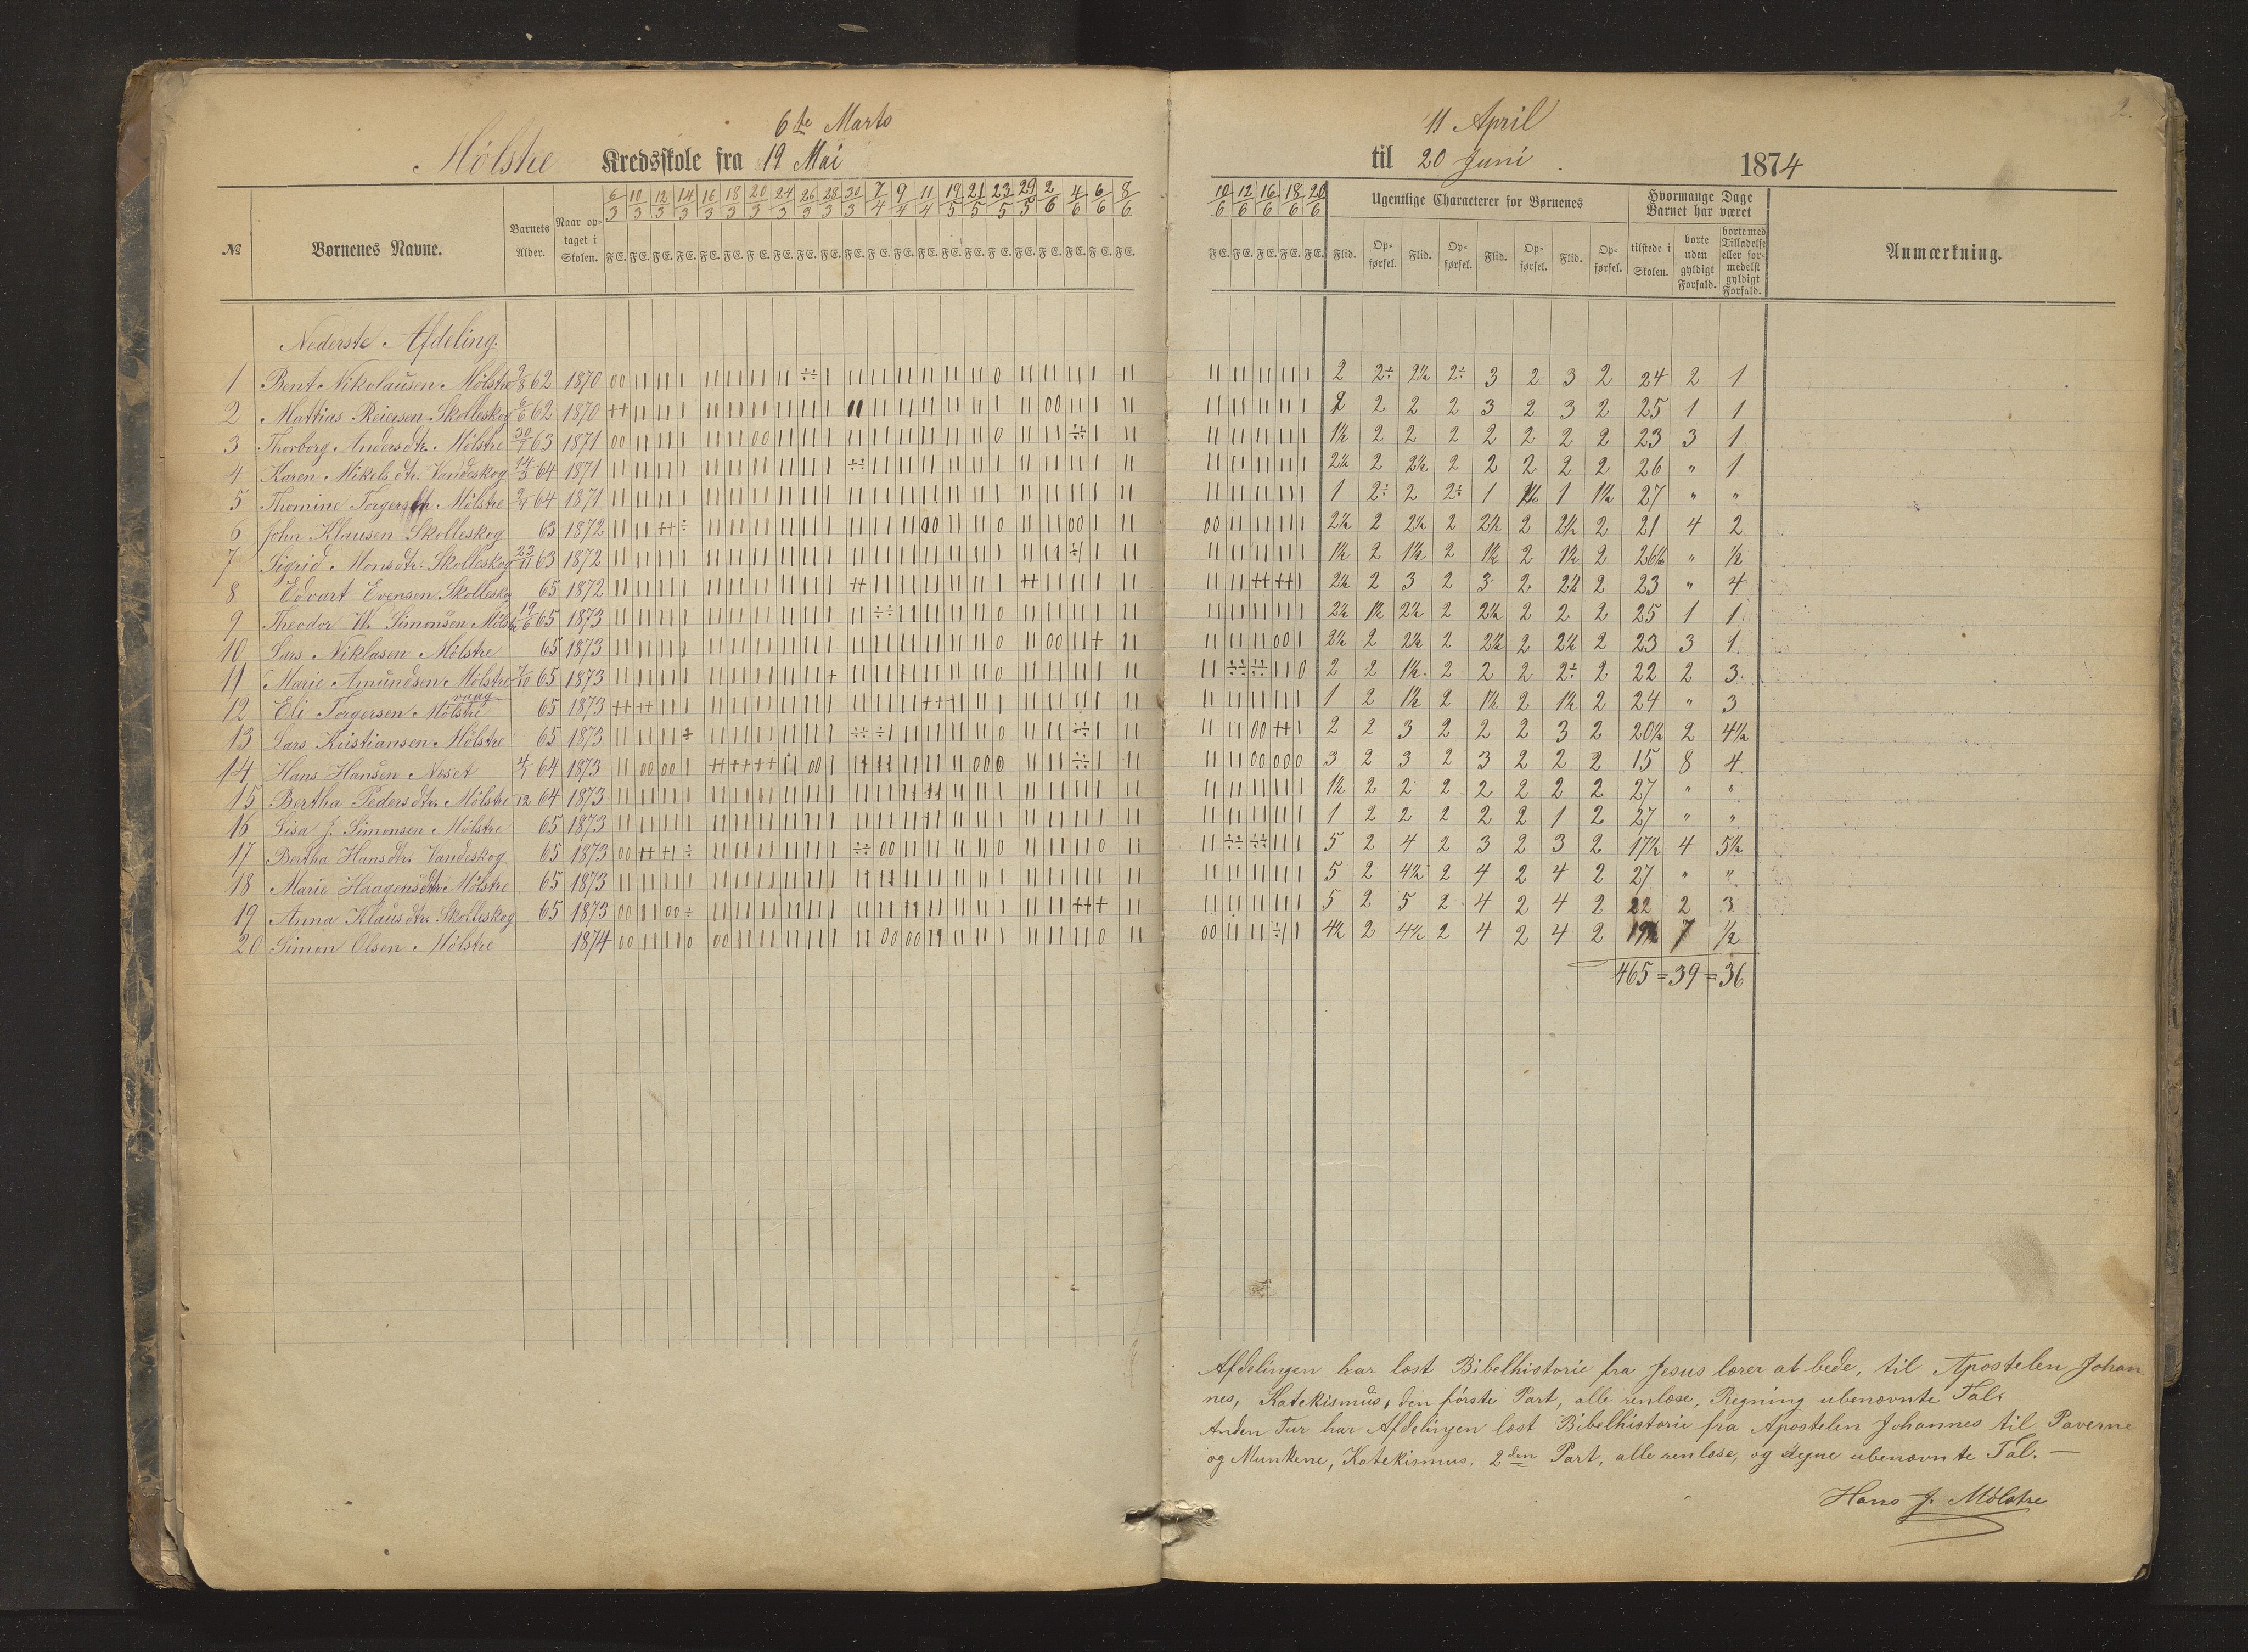 2.
6te Marts 11 April
Mølstre Kredsskole fra 19 Mai til 20 Juni 1874
6/3 10/3 12/3 14/3 16/3 18/3 20/3 24/3 26/3 28/3 30/3 7/4 9/4 11/4 19/5 21/5 23/5 29/5 2/6 4/6 6/6 8/6 10/6 12/6 16/6 18/6 20/6
№ Børnenes Navne. Barnets Alder. Naar optaget i Skolen. F.E. Ugentlige Characterer for Børnenes Hvormange Dage Barnet har været Anmærkning.
Flid. Opførsel. Flid. Opførsel. Flid. Opførsel. Flid. Opførsel. tilstede i Skolen. borte uden gyldigt Forfald. borte med Tilladelse eller formedelst gyldigt Forfald.
Nederste Afdeling.
1 Bent Nikolausen Mølstre 2/8 62 1870 2 2÷ 2½ 2÷ 3 2 3 2 24 2 1
2 Mattias Reiersen Skolleskog 6/6 62 1870 2 2 2 2 3 2 3 2 25 1 1
3 Thorborg Andersdtr. Mølstre 30/7 63 1871 1½ 2 2 2 2 2 2 2 23 3 1
4 Karen Mikelsdtr. Vandeskog 14/3 64 1871 2½ 2 2½ 2 2 2 2 2 26 " 1
5 Thomine Torgersdtr Mølstre 2/4 64 1871 1 2÷ 2 2÷ 1 1½ 1 1½ 27 " "
6 John Klausen Skolleskog 63 1872 2½ 2 2½ 2 2½ 2 2½ 2 21 4 2
7 Sigrid Monsdtr. Skolleskog 23/11 63 1872 1½ 2 1½ 2 1½ 2 1½ 2 26½ " ½
8 Edvart Evensen Skolleskog 65 1872 2½ 2 3 2 3 2 2½ 2 23 " 4
9 Theodor W. Simonsen Mølstre 19/6 65 1873 2½ 1½ 2½ 2 2½ 2 2 2 25 1 1
10 Lars Niklasen Mølstre 65 1873 2½ 2 2½ 2 2½ 2 2½ 2 23 3 1
11 Marie Amundsen Mølstre 7/10 65 1873 2 2 1½ 2 2 2 2÷ 2 22 2 3
12 Eli Torgersen Mølstrevaag 65 1873 1 2 1½ 2 1½ 2 1½ 2 24 " 3
13 Lars Kristiansen Mølstre 65 1873 2 2 3 2 2 2 3 2 20½ 2 4½
14 Hans Hansen Neset 4/1 64 1873 3 2 3 2 3 2 2 2 15 8 4
15 Bertha Pedersdtr. Mølstre /12 64 1873 1½ 2 2 2 2 2 2 2 27 " "
16 Lisa J. Simonsen Mølstre 65 1873 1 2 2 2 2 2 1 2 27 " "
17 Bertha Hansdtr. Vandeskog 65 1873 5 2 4 2 3 2 3 2 17½ 4 5½
18 Marie Haagensdtr Mølstre 65 1873 5 2 4½ 2 4 2 4 2 27 " "
19 Anna Klausdtr. Skolleskog 65 1873 5 2 5 2 4 2 4 2 22 2 3
20 Simon Olsen Mølstre 1874 4½ 2 4½ 2 4 2 4 2 19½ 7 ½
465 = 39 = 36
Afdelingen har læst Bibelhistorie fra Jesus lærer at bede, til Apostelen Johan
nes, Katekismus, den første Part, alle renlæse, Regning ubenævnte Tal.
Anden Tur har Afdelingen læst Bibelhistorie fra Apostelen Johannes til Paverne
og Munkene, Katekismus, 2den Part, alle renlæse, og regne ubenævnte Tal. —
Hans J. Mølstre